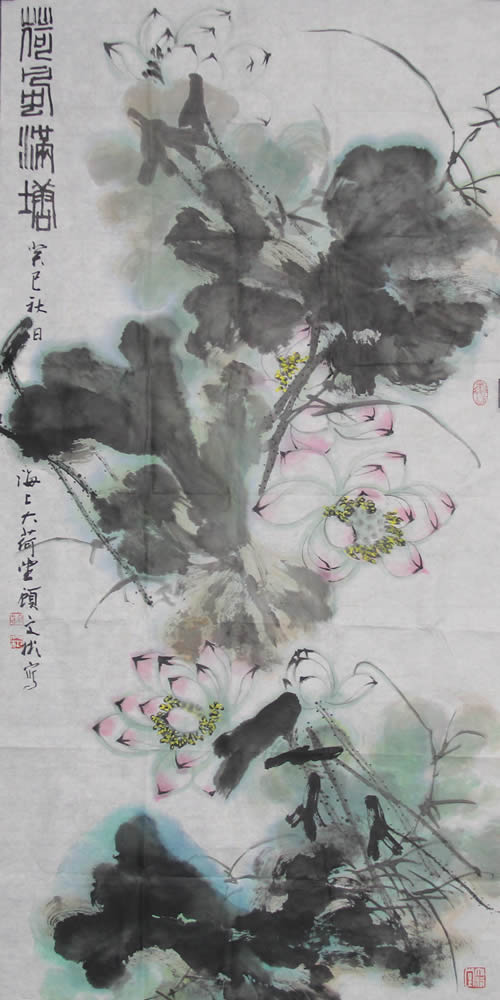 荷風滿塘
癸巳秋日
海上大荷堂顾文彬写